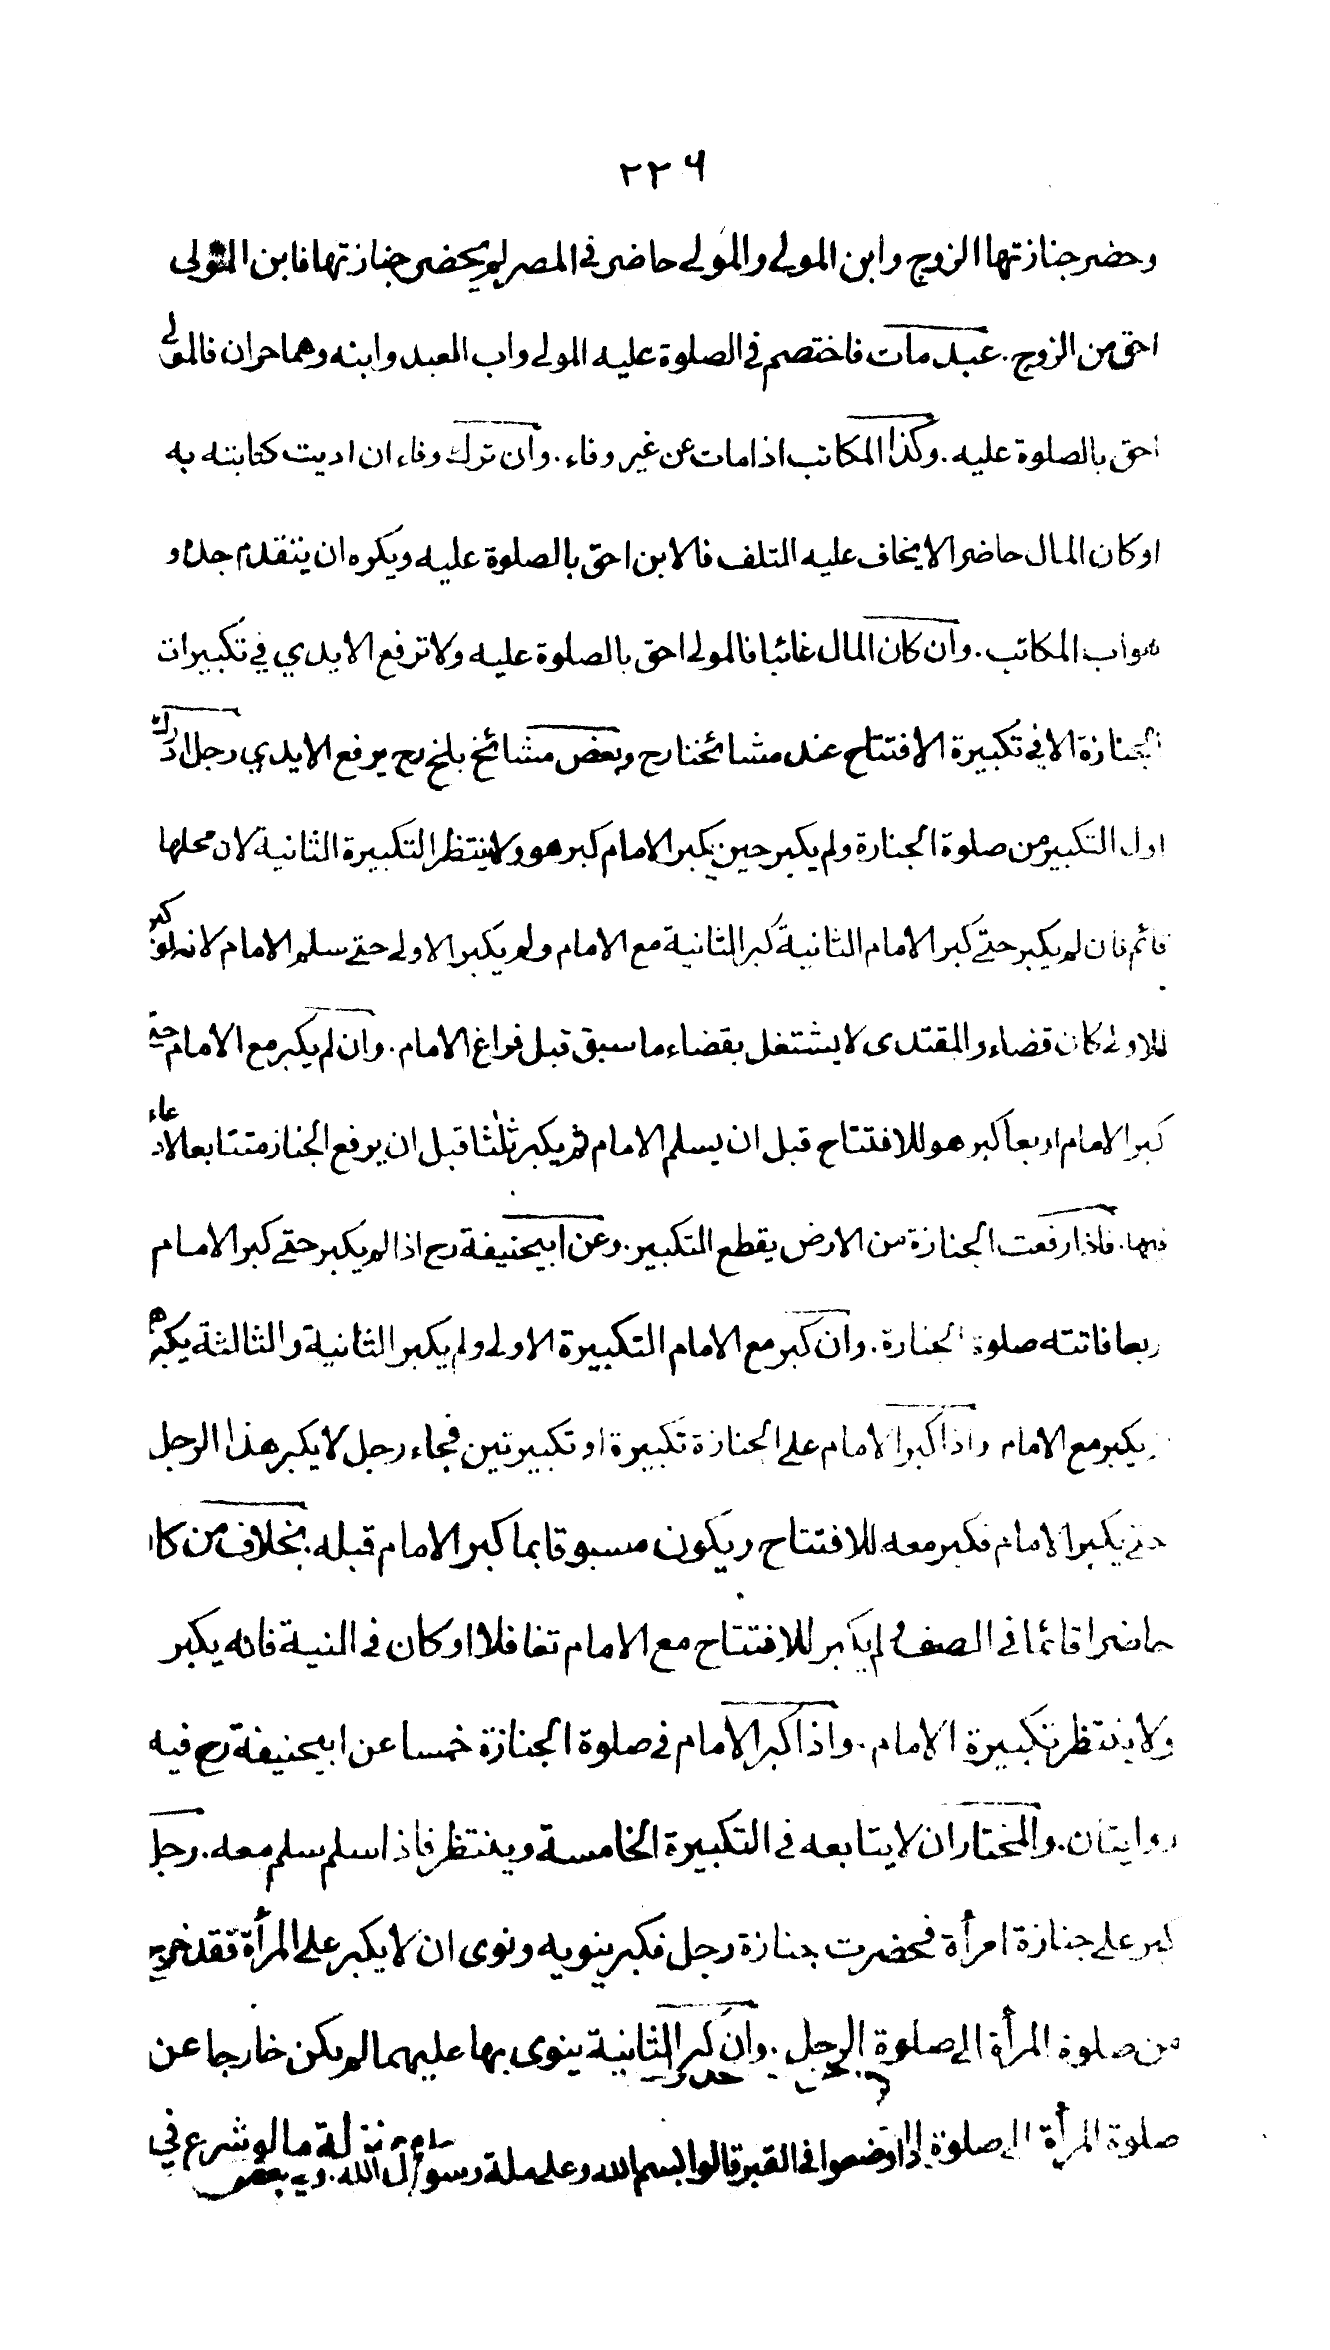 ٢٢٦
وحضر جنازتها الزوج وابن المولى والمولى حاضر في المصر لم يحضر جنازتها فابن المولى
احق من الزوج . عبد مات فاختصم في الصلوة عليه المولى واب العبد وابنه وهما حران فالمولى
احق بالصلوة عليه . وكذا المكاتب اذا مات عن غير وفاء . وان ترك وفاء ان اديت كتابته به
او كان المال حاضرا لا يخاف عليه التلف فالابن احق بالصلوة عليه ويكره ان يتقدم جده و
هو اب المكاتب . وان كان المال غائبا فالمولى احق بالصلوة عليه ولا ترفع الايدي في تكبيرات
الجنازة الا في تكبيرة الافتتاح عند مشائخنا رح وبعض مشائخ بلخ رح يرفع الايدي رجل ادرك
اول التكبير من صلوة الجنازة ولم يكبر حين يكبر الامام كبر هو ولا ينتظر التكبيرة الثانية لان محلها
قائم فان لم يكبر حتى كبر الامام الثانية كبر الثانية مع الامام ولم يكبر الاولى حتى سلم الامام لانه لو كبر
للاولى كان قضاء والمقتدى لا يشتغل بقضاء ما سبق قبل فراغ الامام . وان لم يكبر مع الامام حتى
كبر الامام اربعا كبر هو للافتتاح قبل ان يسلم الامام ثم يكبر ثلثا قبل ان يرفع الجناز متتابعا لا دعاء
فيها . فاذا رفعت الجنازة من الارض يقطع التكبير . وعن ابيحنيفة رح اذا لم يكبر حتى كبر الامام
ربعا فاتته صلوة الجنازة . وان كبر مع الامام التكبيرة الاولى ولم يكبر الثانية والثالثة يكبرهما
يكبر مع الامام واذا كبر الامام على الجنازة تكبيرة او تكبيرتين فجاء رجل لا يكبر هذا الرجل
حتى يكبر الامام فكبر معه للافتتاح ويكون مسبوقا بما كبر الامام قبله . بخلاف من كان
حاضرا قائما في الصف لم يكبر للافتتاح مع الامام تغافلا او كان في النية فانه يكبر
ولا ينتظر تكبيرة الامام . واذا كبر الامام في صلوة الجنازة خمسا عن ابيحنيفة رح فيه
روايتان . والمختار ان لا يتابعه في التكبيرة الخامسة وينتظر فاذا سلم سلم معه . رجل
كبر على جنازة امرأة فحضرت جنازة رجل فكبر ينويه ونوى ان لا يكبر على المرأة فقد خرج
من صلوة المرأة الى صلوة الرجل . وان كبر الثانية ينوى بها عليهما لم يكن خارجا عن
صلوة المرأة الى صلوة نزلة ما لو شرع في
اذا وضعوا في القبر قالوا بسم الله وعلى ملة رسول الله .